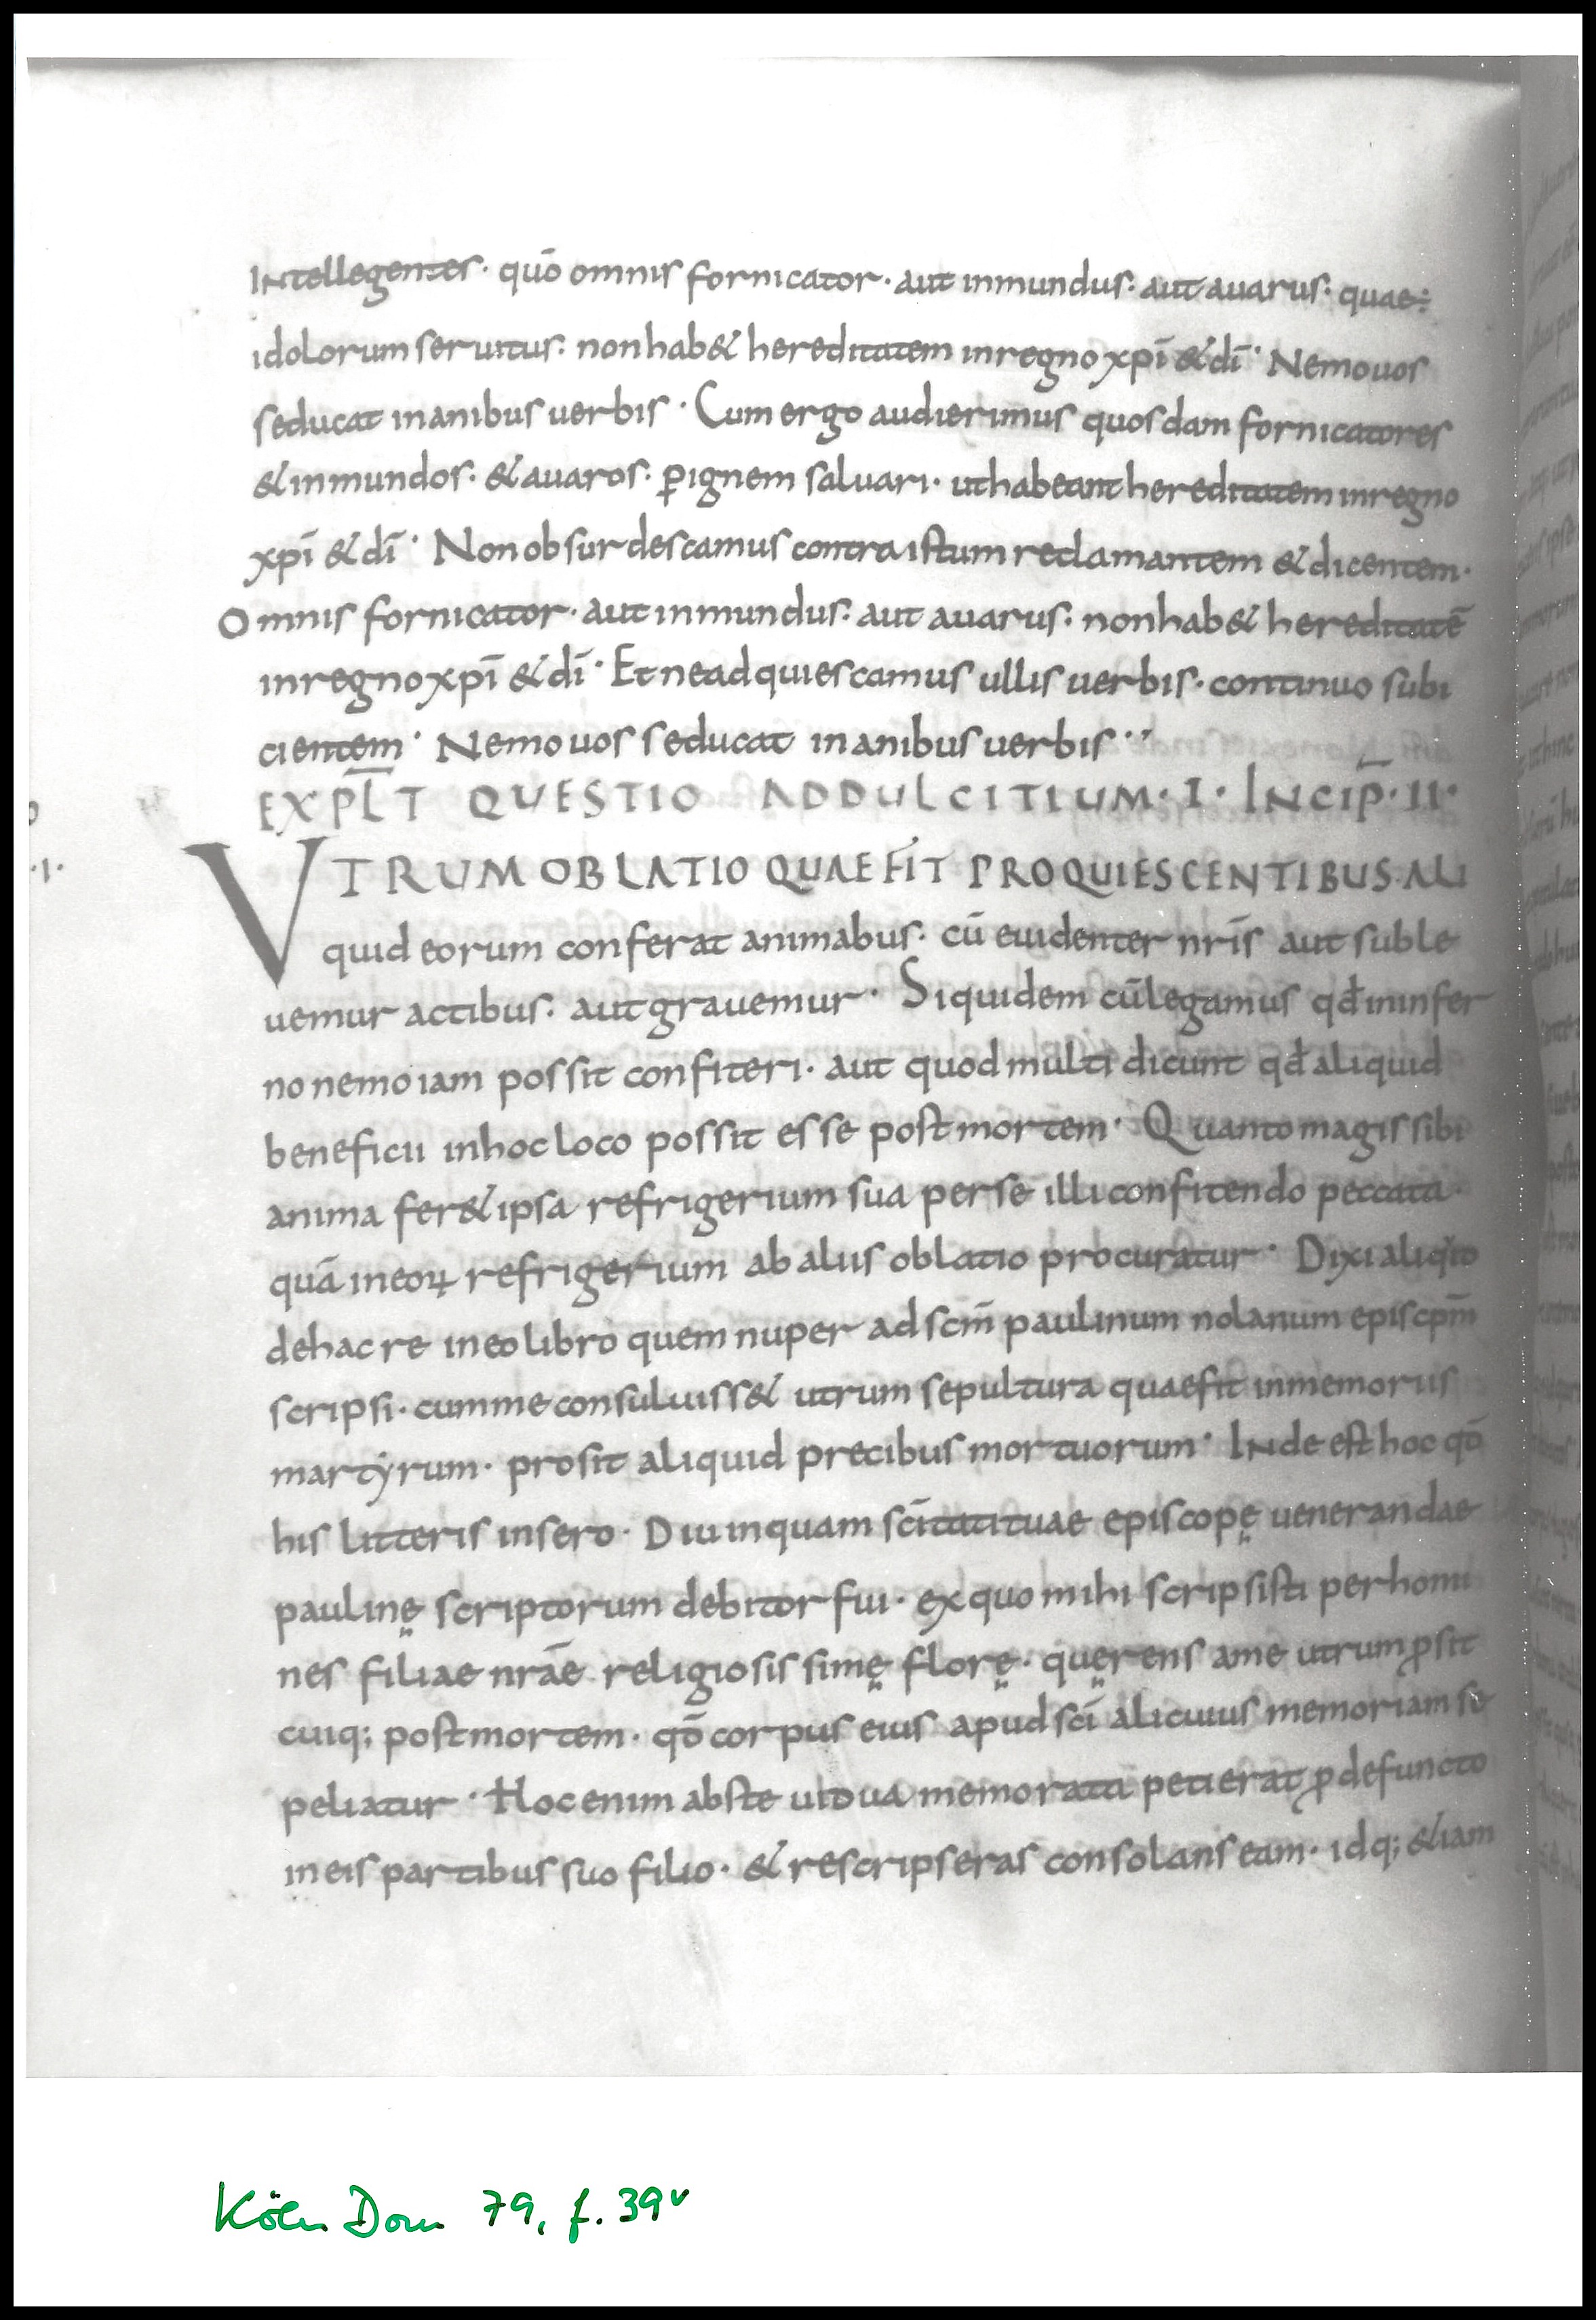 Intellegentes· quō omnis fornicator· aut inmundus· aut auarus· quae÷
idolorum seruitus· non hab& hereditatem in regno xpī & dī· Nemo uos
seducat inanibus uerbis· Cum ergo audierimus quosdam fornicatores
& inmundos· & auaros· ꝑ ignem saluari· ut habeant hereditatem in regno
xpī & dī· Non obsurdescamus contra istum reclamantem & dicentem·
Omnis fornicator· aut inmundus· aut auarus· non hab& hereditatē
in regno xpī & dī· Et ne adquiescamus ullis uerbis· continuo subi
cientem· Nemo uos seducat inanibus uerbis··
EXPLT̄ QUESTIO AD DULCITIUM·I· INCIP̄·II·
·I·
VTRUM OBLATIO QUAE FIT PRO QUIESCENTIBUS·ALI
quid eorum conferat animabus· cū euidenter nrīs aut suble
uemur actibus· aut grauemur· Siquidem cū legamus qđ in infer
no nemo iam possit confiteri· aut quod multi dicunt qđ aliquid
beneficii in hoc loco possit esse post mortem· Quanto magis sibi
anima fer& ipsa refrigerium sua per se illi confitendo peccata·
quā in eoꝝ refrigerium ab aliis oblatio procuratur· Dixi aliqto
de hac re in eo libro quem nuper ad scm̄ paulinum nolanum episcpm̄
scripsi· cum me consuluiss& utrum sepultura quae fit in memoriis
martyrum· prosit aliquid precibus mortuorum· Inde est hoc qō
his litteris insero· Diu inquam scītati tuae episcopę uenerandae
paulinę scriptorum debitor fui· ex quo mihi scripsisti per homi
nes filiae nrāe religiosissimę florę· quęrens a me utrum ꝓsit
cuiq; post mortem· qō corpus eius apud scī alicuius memoriam se
peliatur· Hoc enim abs te uidua memorata petierat ꝓ defuncto
in eis partibus suo filio· & rescripseras consolans eam· idq; &iam
Köln Dom 79, f. 39v